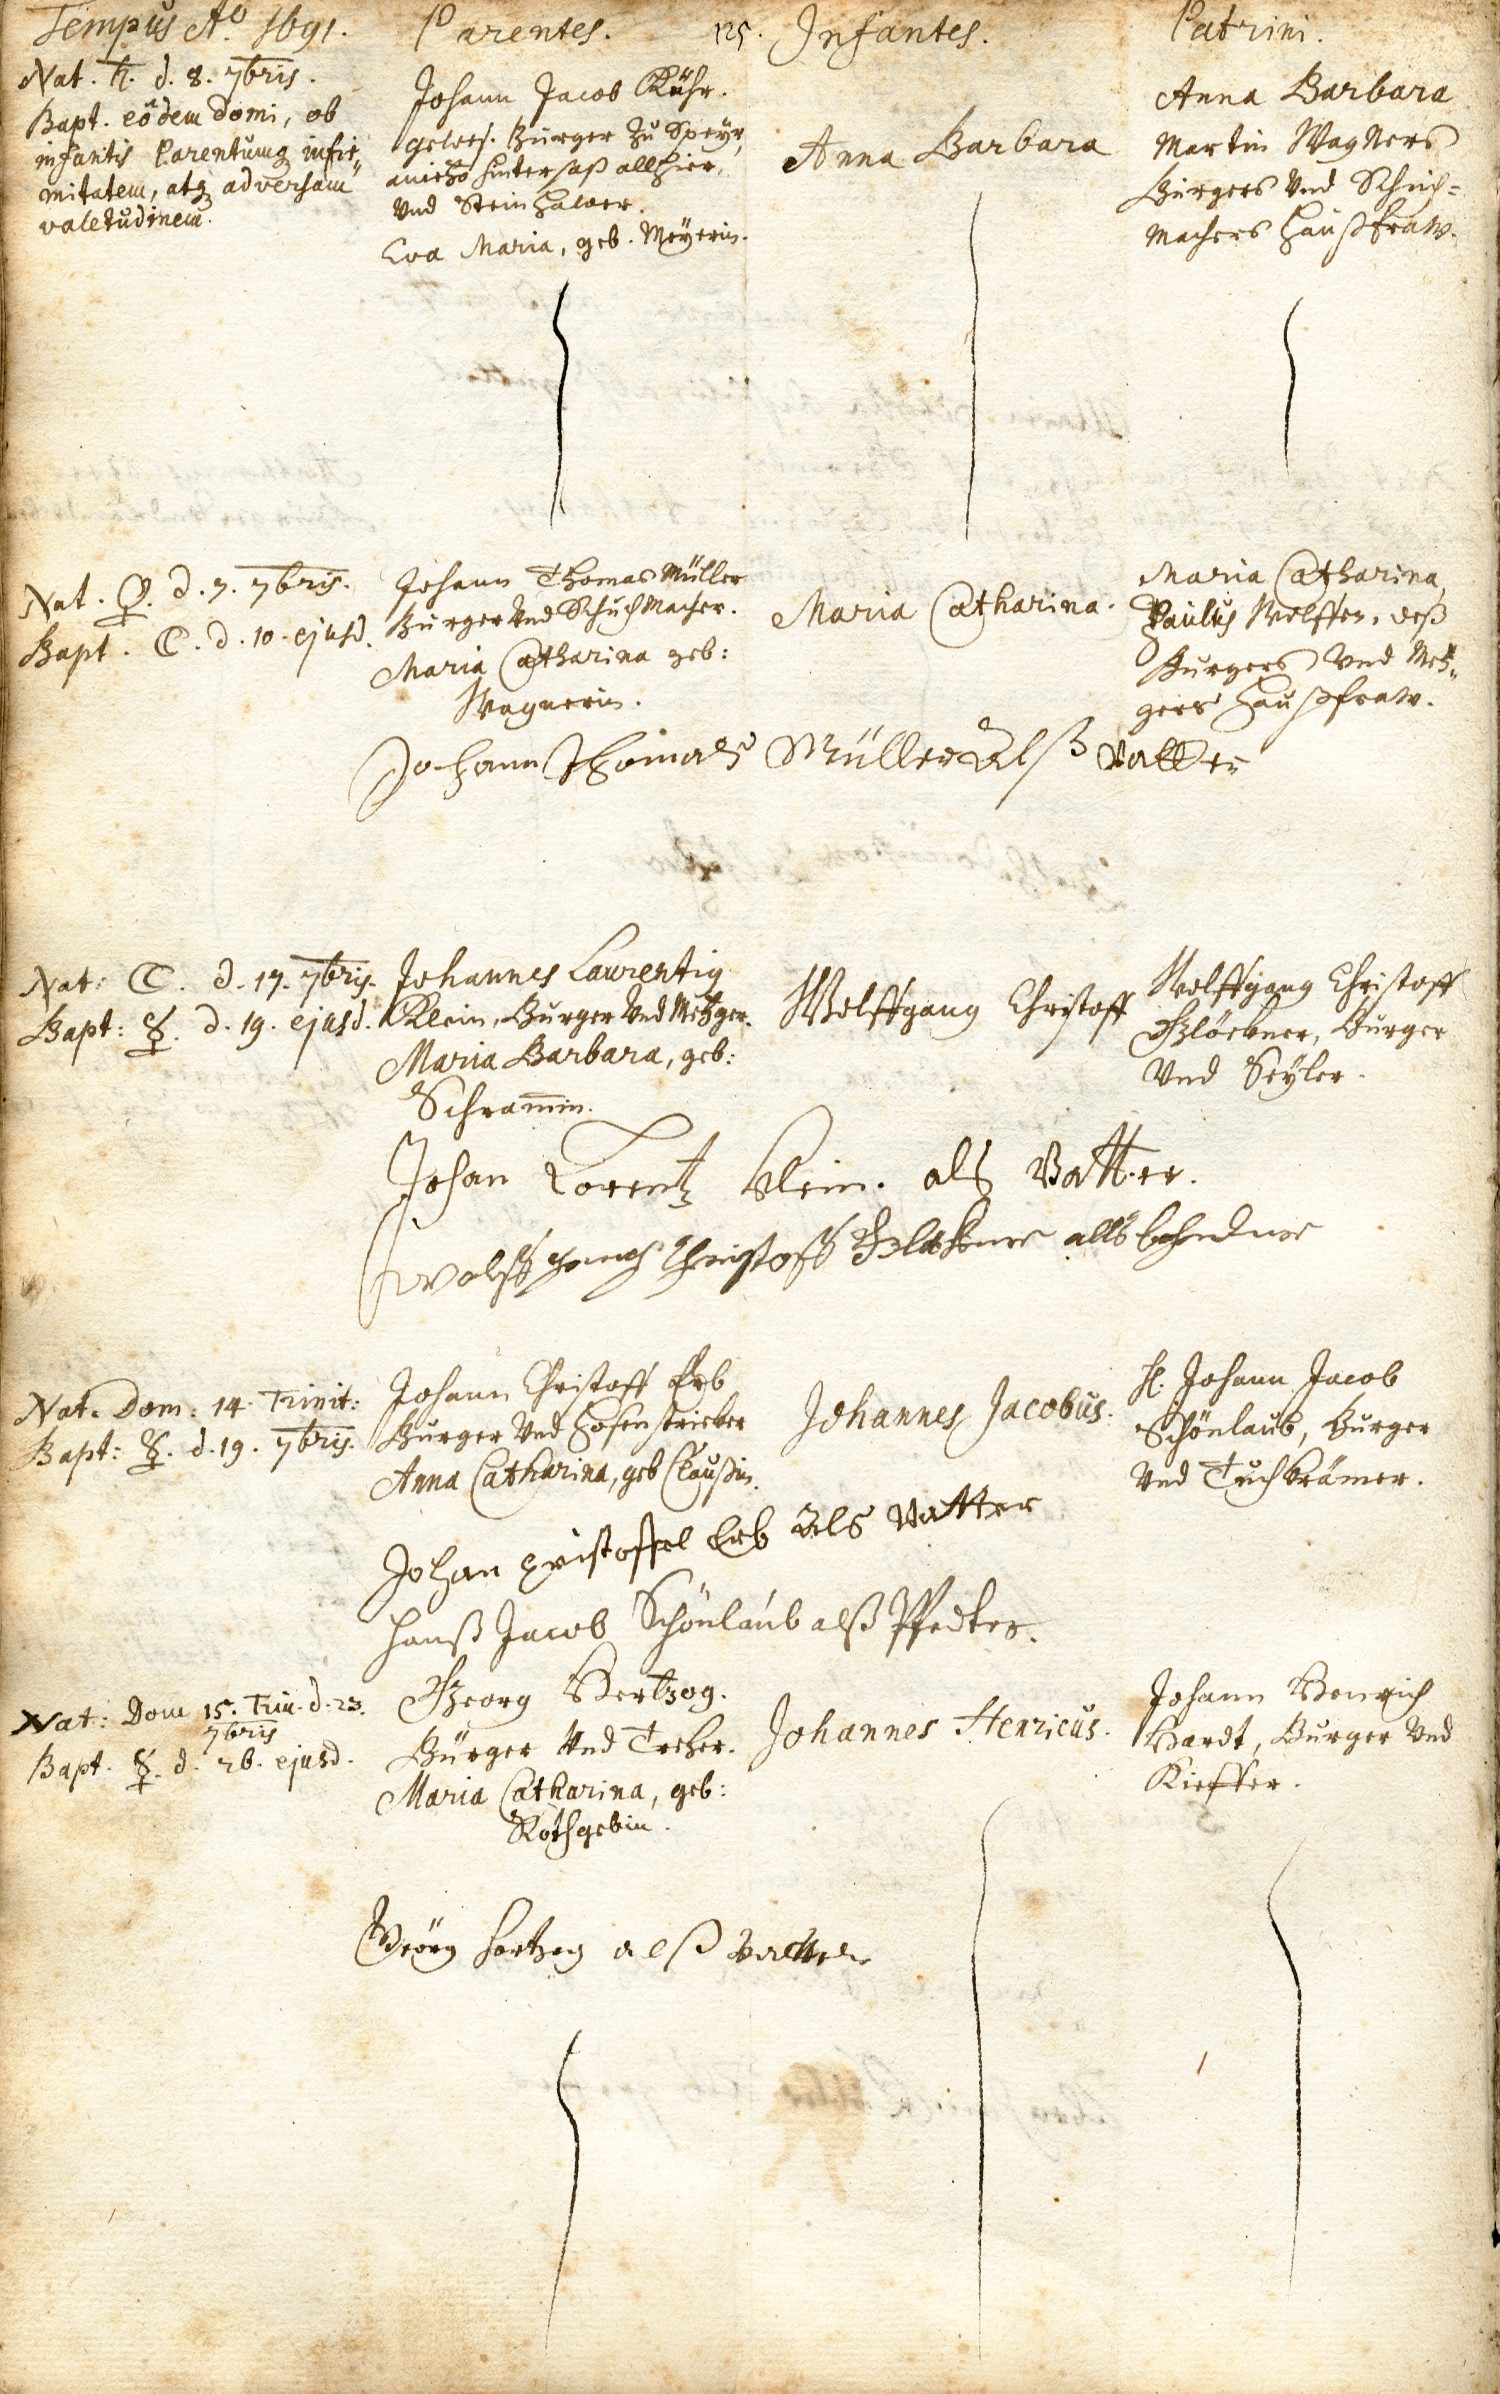 Tempus Aͦ. 1691.
Parentes.
125.
Infantes.
Patrini.
Nat. ♄. d. 8. 7bris.
Bapt. eôdem domi, ob
infantis Parentumq; infir„
mitatem, atq; adversam
valetudinem.
Johann Jacob Kühr.
gewes. Burger zu Speyr,
anietzo hintersaß allhier,
Vnd Steinhawer.
Eva Maria, geb. Meyerin.
Anna Barbara
Anna Barbara
Martin Wagners
Burgers Vnd Schuch=
machers Haußfraw.
Nat. ♀. d. 7. 7bris.
Bapt. ☾. d. 10. ejusd.
Johann Thomas Müller
Burger Vnd Schuchmacher.
Maria Catharina geb:
Wagnerin.
Maria Catharina.
Maria Catharina,
Paulus Wolffen, deß
Burgers Vnd Metz„
gers Haußfraw.
Johann Thomas Müller Alß Vatter
Nat: ☾. d. 17. 7bris.
Bapt: ☿. d. 19. ejusd.
Johannes Laurentiq
Klein, Burger Vnd Metzger.
Maria Barbara, geb:
Schram̅in.
Wolffgang Christoff
Wolffgang Christoff
Glöckner, Burger
Vnd Seyler.
Johan Lorentz Klein. als Vatter.
Wolff Christoff Glöckner alls
Nat. Dom: 14. Trinit:
Bapt: ☿. d. 19. 7bris.
Johann Christoff Erb
Burger Vnd Hosenstricker
Anna Catharina, geb Claußin.
Johannes Jacobus.
H. Johann Jacob
Schönlaub, Burger
Vnd Tuchkrämer.
Johan Cristoffel Erb Als Vatter
Hanß Jacob Schönlaub alß Pfedter.
Nat: Dom 15. Trin. d. 23.
7bris
Bapt. ☿. d. 26. ejusd.
Georg Hertzog.
Bürger Vnd Treher.
Maria Catharina, geb:
Rothgebin.
Johannes Henricus.
Johann Henrich
Hardt, Burger Vnd
Kieffer.
Geörg Hertzog alß Vatter